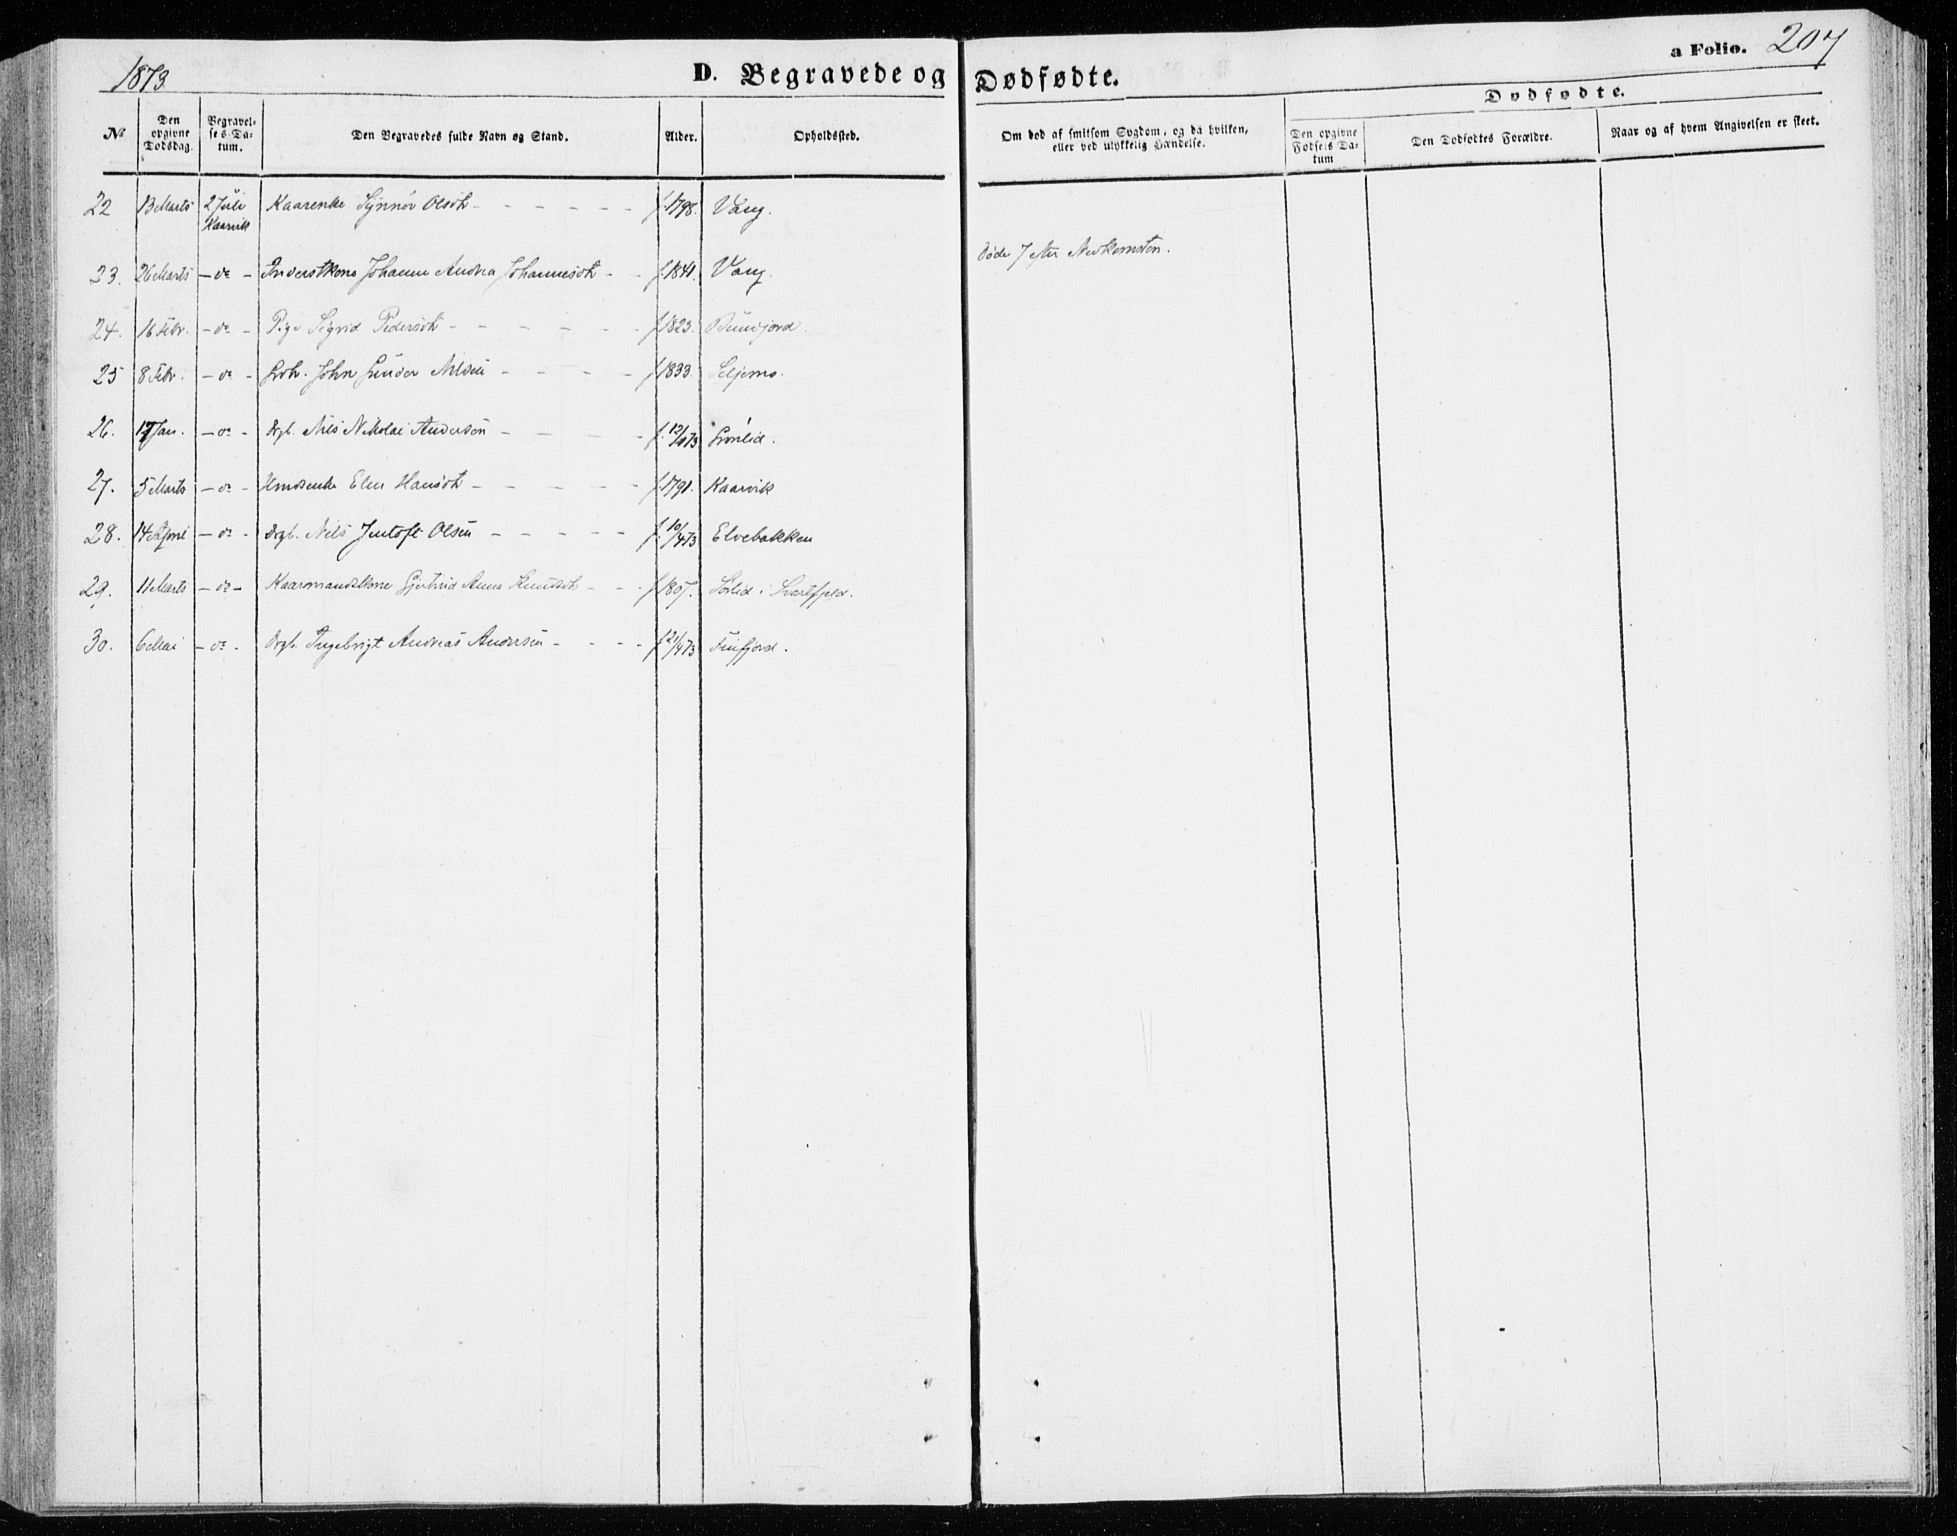 1873.
D. Begravede og Dødfødte.
a Folio. 207
Dødfødte.
No
Den opgivne Dødsdag.
Begravelses-Datum.
Den Begravedes fulde Navn og Stand.
Alder.
Opholdssted.
Om død af smitsom Sygdom, og da hvilken, eller ved ulykkelig Hændelse.
Den opgivne Fødsels Datum
Den Dødfødtes Forældre.
Naar og af hvem Angivelsen er skeet.
22 13 Marts 2 Juli Kaarvik Kaarenke Synnøv Olsdt - - - - - - f. 1798. Vang.
23. 26 Marts - do - Inderstkone Johanne Andrea Johannesdt - - f. 1841. Vang. Døde 7 efter Nedkomsten.
24. 16 Febr. - do - Pige Sigrid Pedersdt - - - - - f. 1823.
25 8 Febr. - do - John Nilsen - - - - f. 1833.
26. Jan. - do - Drgb. Nils Nikolai Andersen - - - - Grønlid.
27. 5 Marts - do - Elen Hansdt - - - - - f. 1791. Kaarvik
28. 14 April - do - Drgb. Nils Jentoft Olsen - - - - - f. 10/4 73 Elvebakken
29. 11 Marts - do - Kaarmandskone Gjertrud Anna Knudsdt - - - f. 1807.
30. 6 Mai - do - Drgb. Ingebrigt Andreas Andersen - - - - f. 21/4 73 Finfjord.